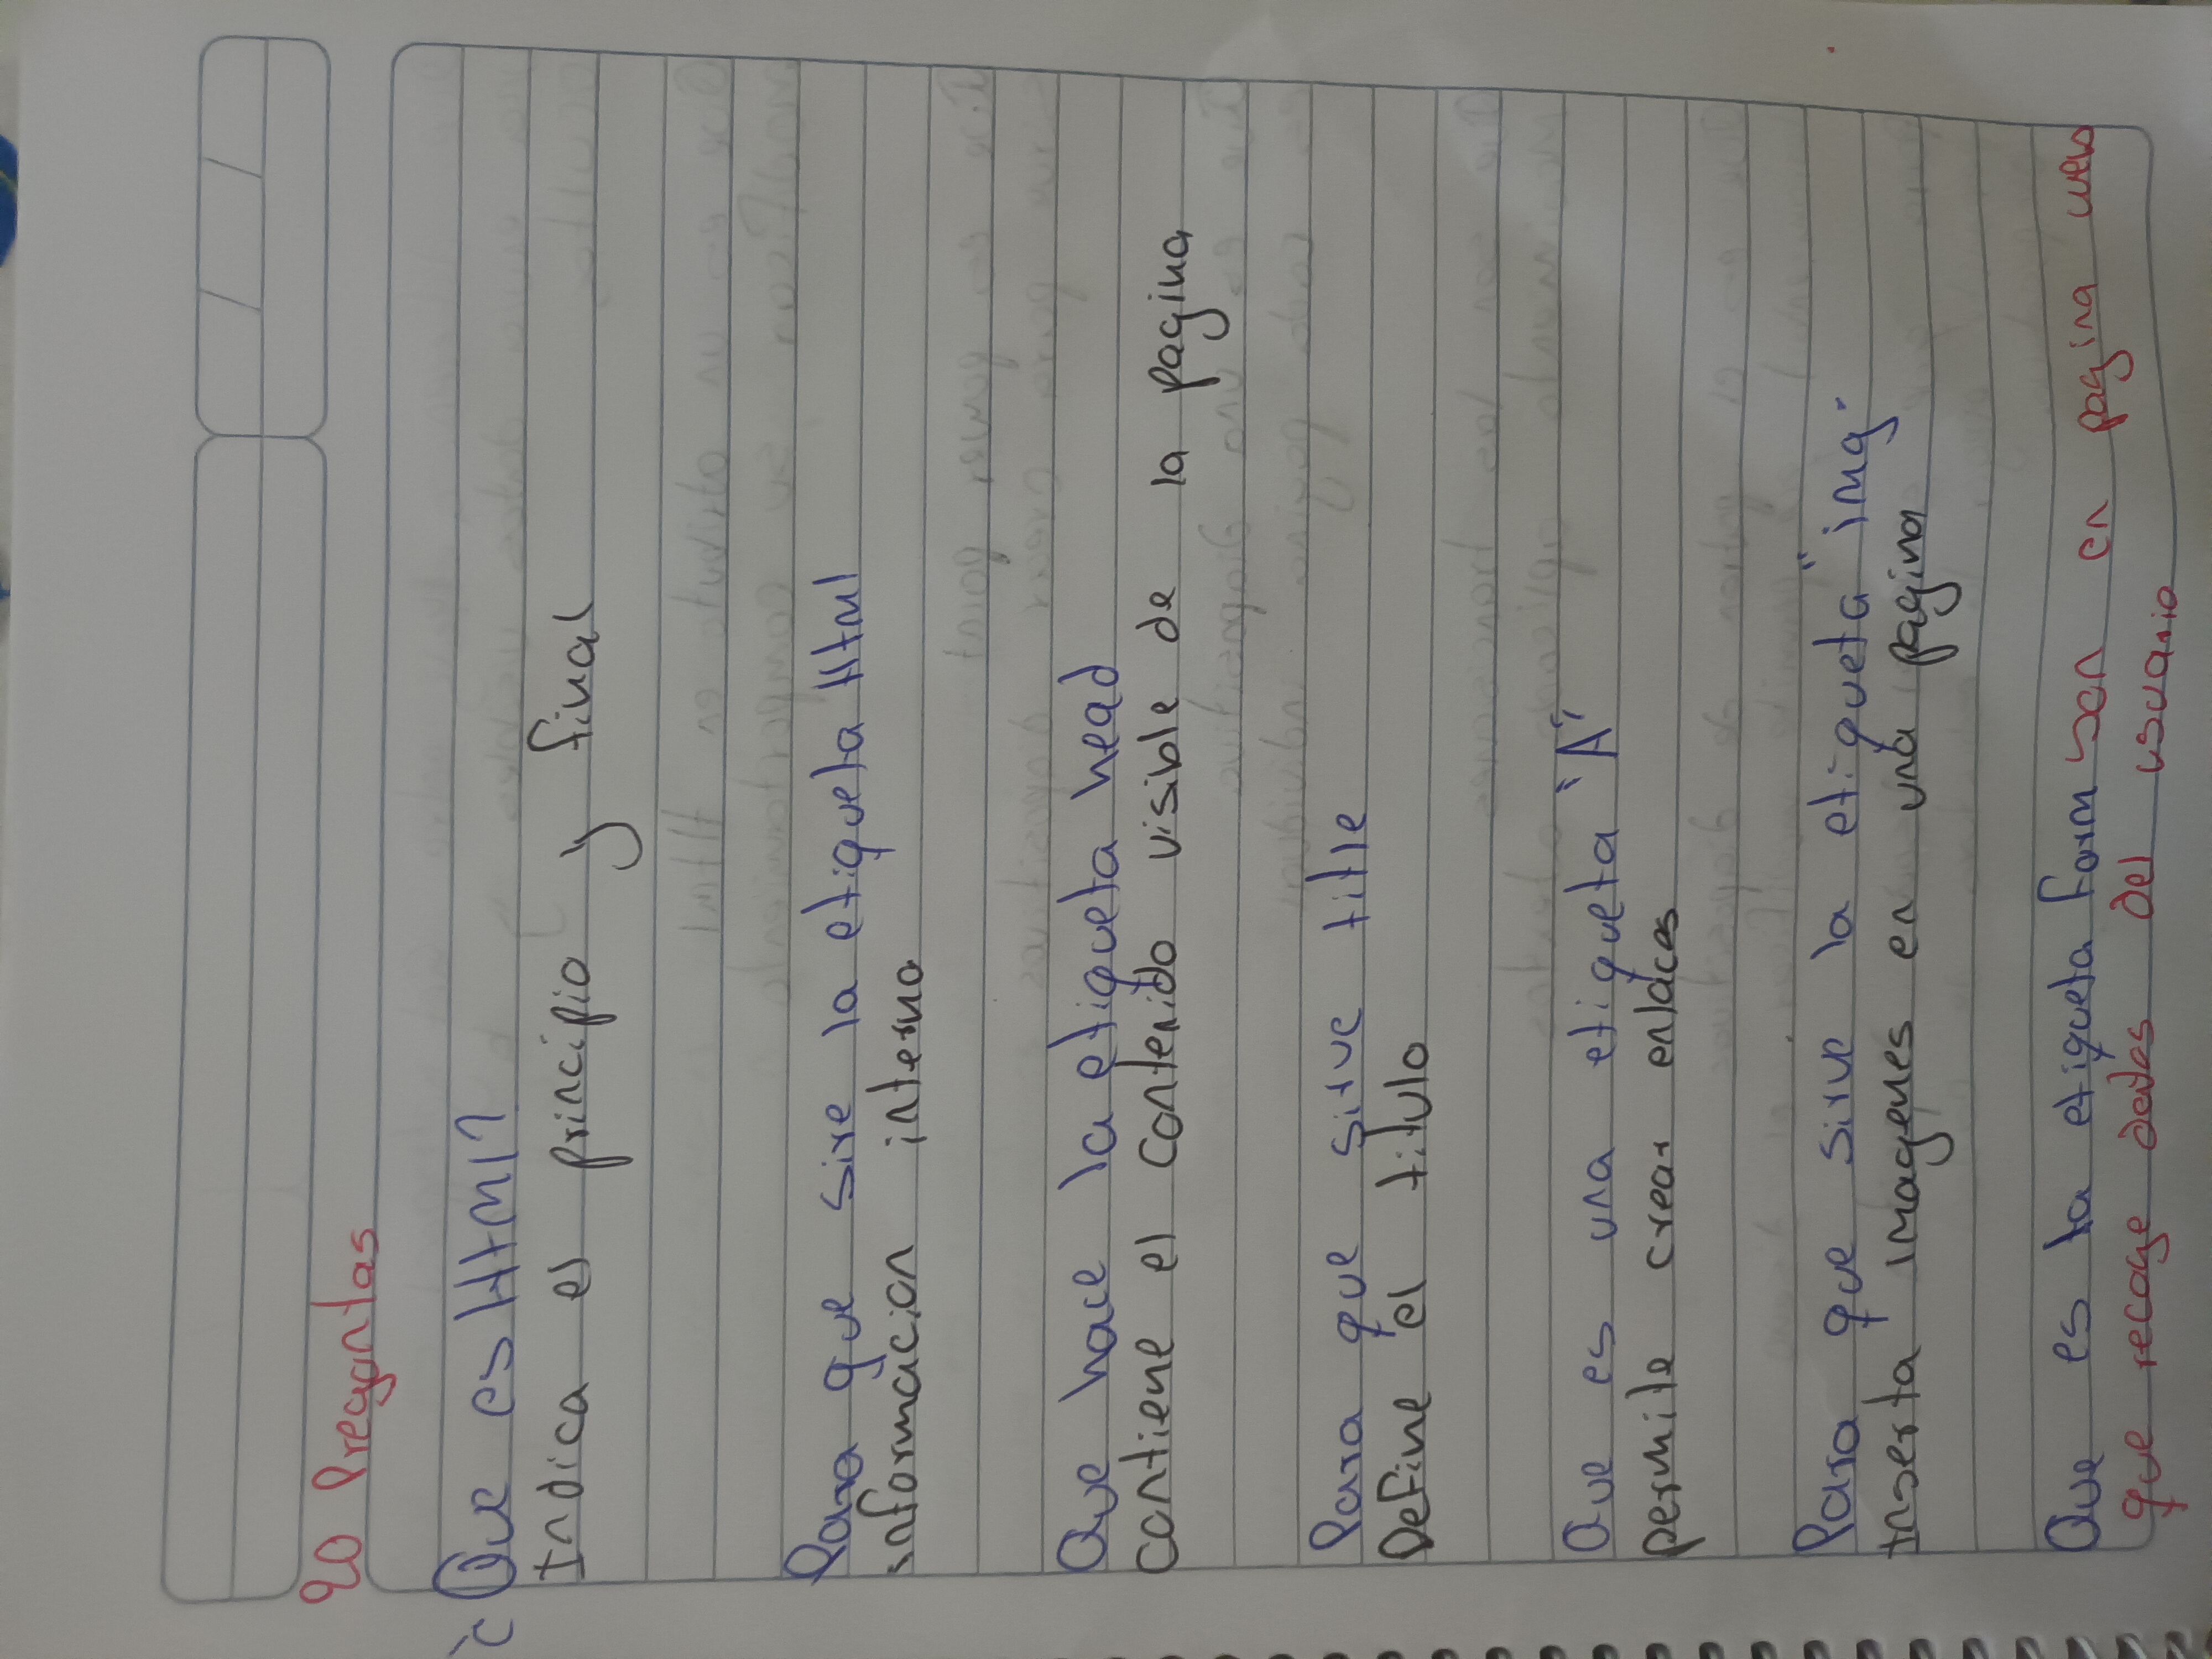 20 Pregantas
¿Que es Html?
Indica el principio y final
Para que sire la etiqueta Html
informacion interna
Que hace la etiqueta head
Contiene el contenido visible de la pagina
Para que sirve title
Define el titulo
Que es una etiqueta "A"
permite crear enlaces
Para que sirve la etiqueta "img"
Inserta imagenes en una pagina
Que es la etiqueta form son en pagina web
que recoge datos del usuario